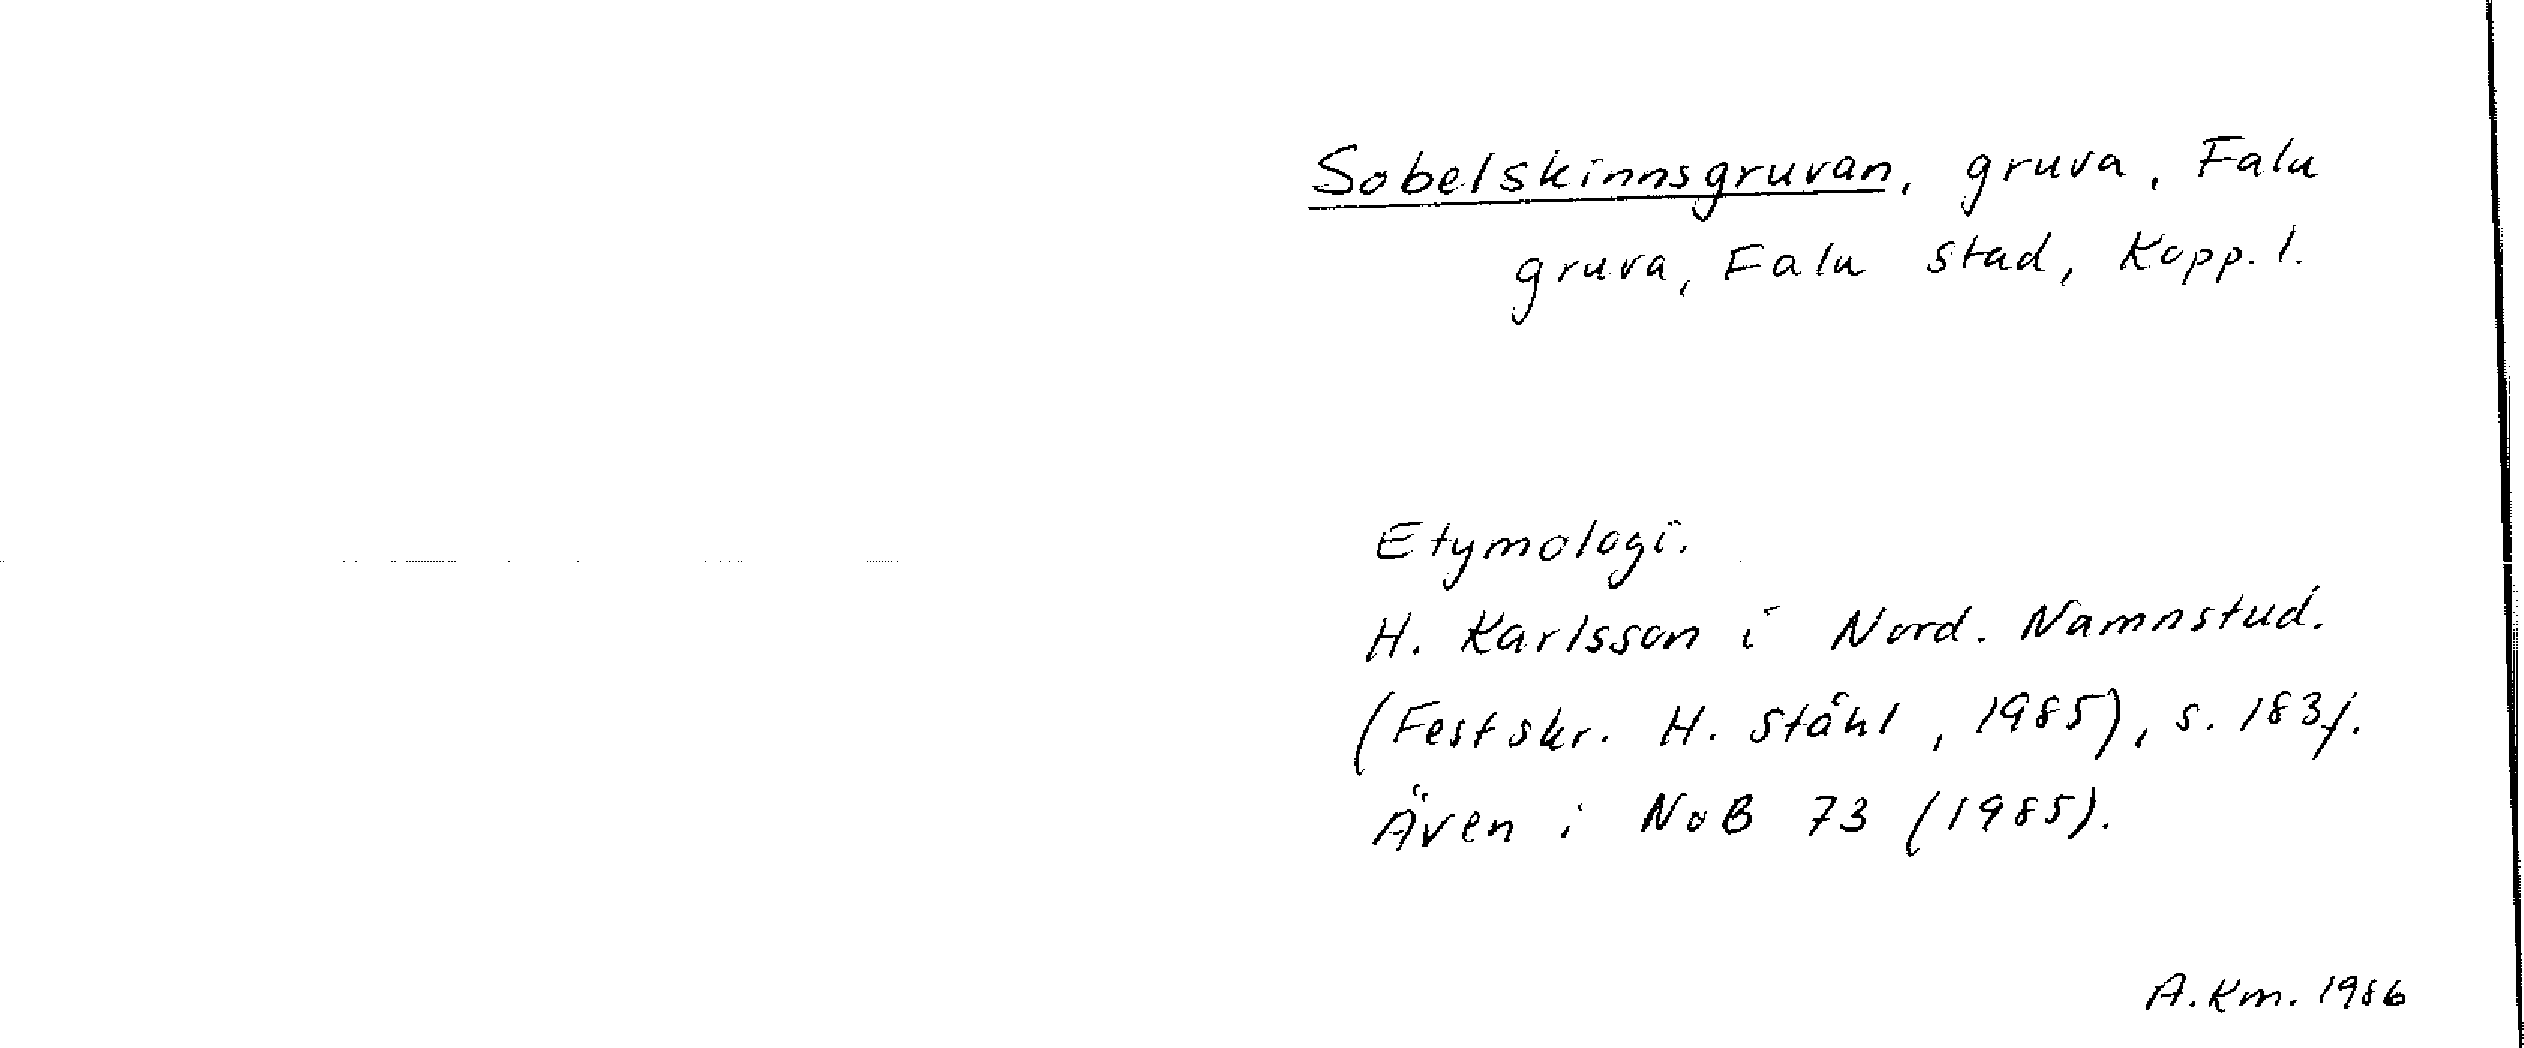 Sobelskinnsgruvan, gruva, Falu
gruva, Falu stad, Kopp. l.
Etymologi.
H. Karlsson i Nord. Namnstud.
(Festskr. H. Ståhl, 1985), s. 183f.
Även i NoB 73 (1985).
A.Km. 1986